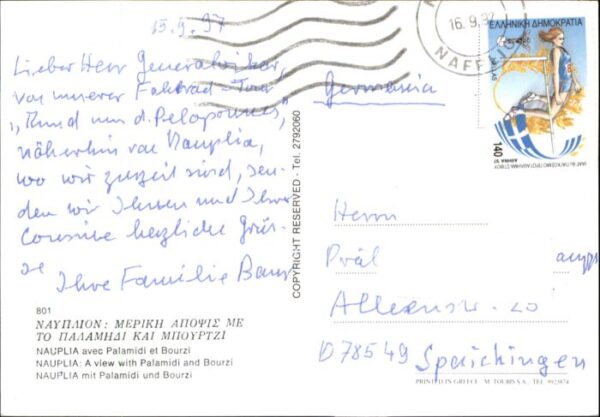 15.9.97
Lieber Herr Generalvikar,
von unserer Fahrrad-Tour
"Rund um d. Peloponnes",
näherhin von Nauplia,
wo wir zurzeit sind, sen-
den wir Ihnen und Ihrer
Cousine herzliche Grüs-
se Ihre Familie
801
ΝΑΥΠΛΙΟΝ: ΜΕΡΙΚΗ ΑΠΟΨΙΣ ΜΕ
ΤΟ ΠΑΛΑΜΗΔΙ ΚΑΙ ΜΠΟΥΡΤΖΙ
NAUPLIA avec Palamidi et Bourzi
NAUPLIA: A view with Palamidi and Bourzi
NAUPLIA mit Palamidi und Bourzi
COPYRIGHT RESERVED - Tel. 2792060
16.9.97
ΕΛΛΗΝΙΚΗ ΔΗΜΟΚΡΑΤΙΑ
140
Germania
Herrn
Präl
D 78549 Spaichingen
PRINTED IN GREECE - M. TOURIS S.A. TEL. 9923874